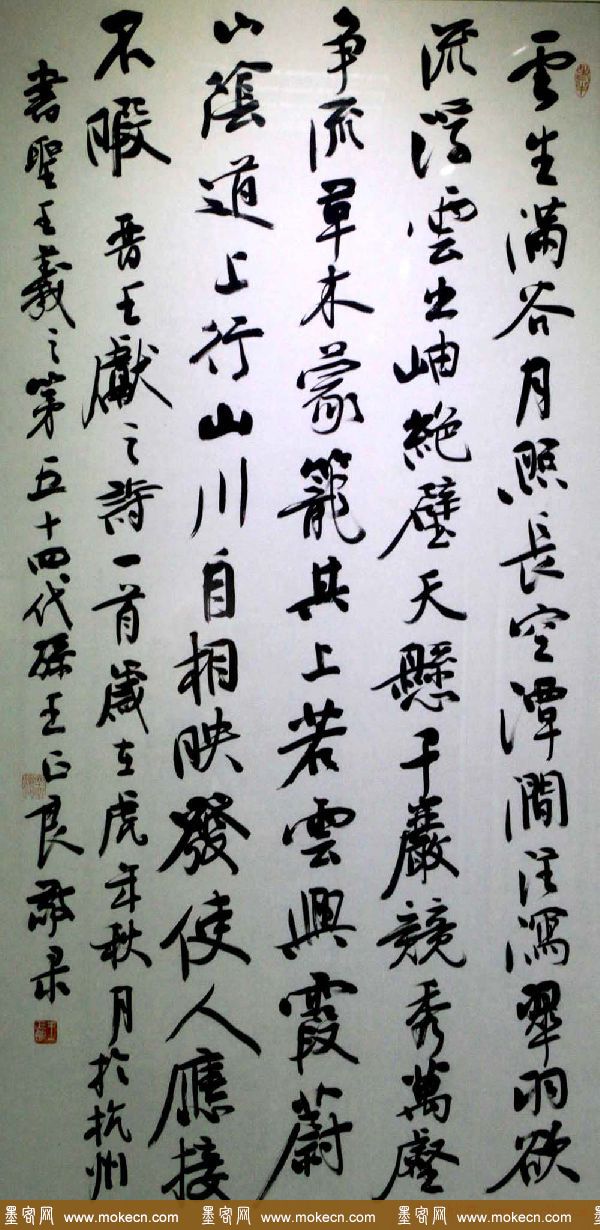 雲生滿谷月照長空潭澗注瀉翠羽欲
流浮雲出岫絶壁天懸千巖競秀萬壑
争流草木蒙籠其上若雲興霞蔚
山陰道上行山川自相映發使人應接
不暇 晋王獻之詩一首歲在虎年秋月於杭州
書聖王羲之第五十四代孫王正良敬录
墨客网 www.mokecn.com 墨客网 www.mokecn.com 墨客网 www.mokecn.com